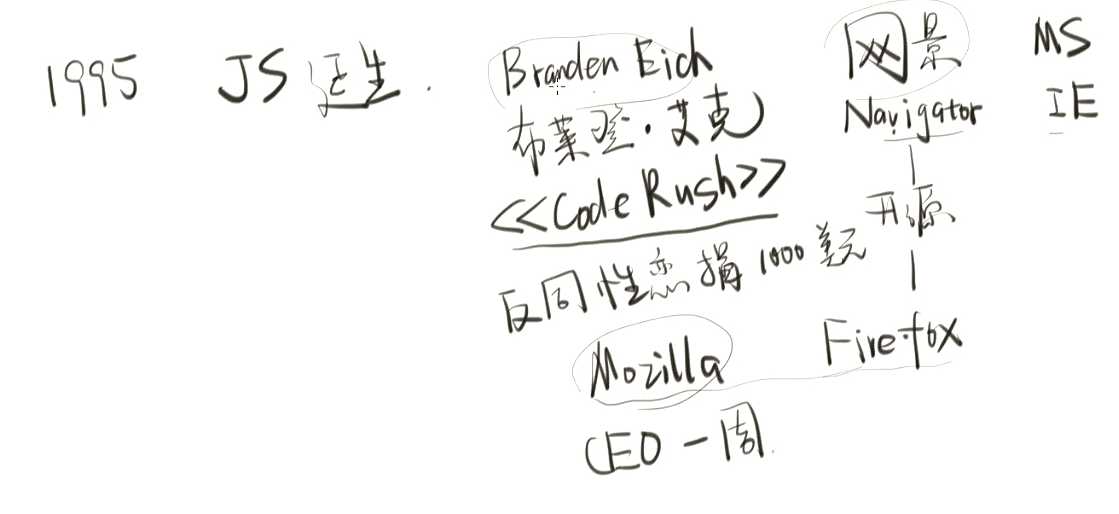 1995 JS 诞生. Branden Eich 网景 MS
布莱登·艾克 Navigator IE
<<Code Rush>> 开源
反同性恋捐1000美元
Mozilla Firefox
CEO 一周